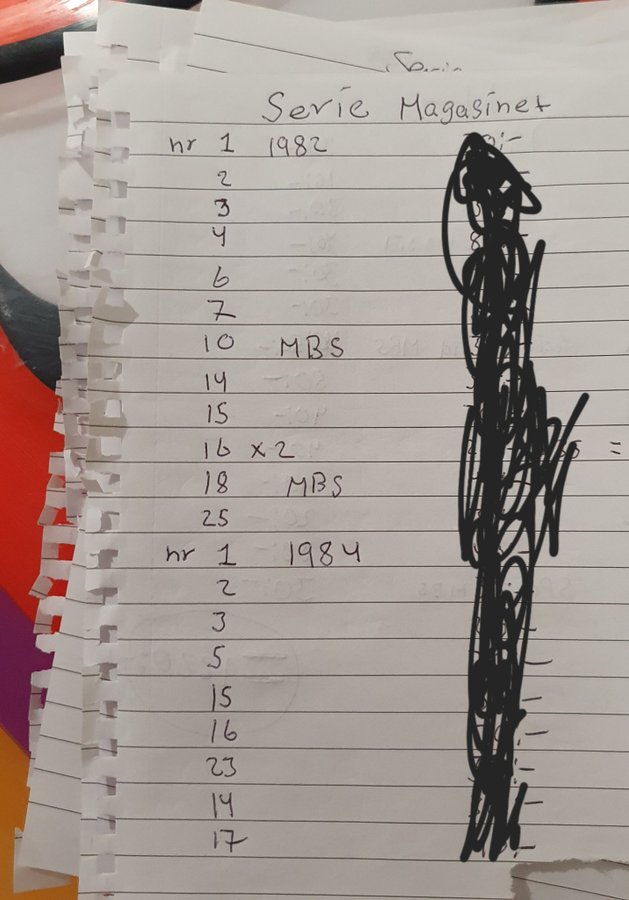 Serie Magasinet
nr 1 1982
2
3
4
6
7
10 MBS
14
15
16 x 2 =
18 MBS
25
nr 1 1984
2
3
5
15
16
23
14
17